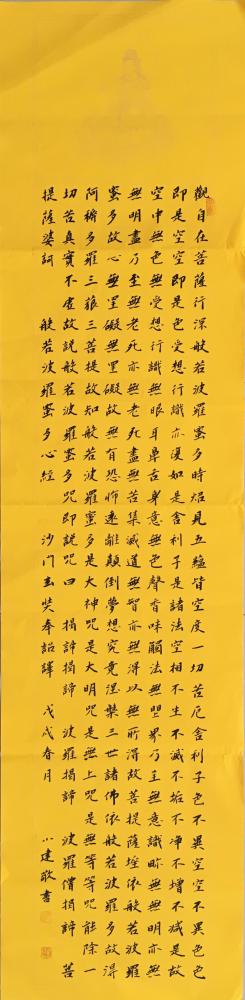 觀自在菩薩行深般若波羅蜜多時炤見五蘊皆空度一切苦厄舍利子色不異空空不異色色
即是空空即是色受想行識亦復如是舍利子是諸法空相不生不滅不垢不淨不增不減是故
空中無色無受想行識無眼耳鼻舌身意無色聲香味觸法無眼界乃至無意識界無無明亦無
無明盡乃至無老死亦無老死盡無苦集滅道無智亦無得以無所得故菩提薩埵依般若波羅
蜜多故心無罣礙無罣礙故無有恐怖遠離顛倒夢想究竟涅槃三世諸佛依般若波羅蜜多故得
阿耨多羅三藐三菩提故知般若波羅蜜多是大神咒是大明咒是無上咒是無等等咒能除一
切苦真實不虛故說般若波羅蜜多咒即說咒曰 揭諦揭諦 波羅揭諦 波羅僧揭諦 菩
提薩婆訶 般若波羅蜜多心經 沙門玄奘奉詔譯 戊戌春月 建敬書